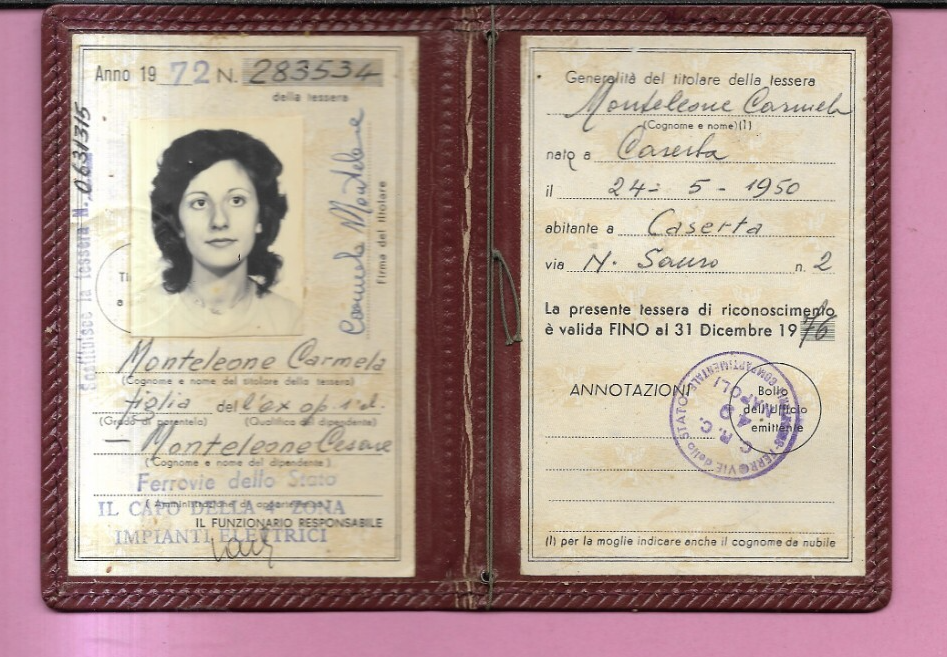 Anno 19 72 N. 283534
della tessera
Sostituisce la tessera N. 063/315
Carmela Monteleone
Firma del titolare
Monteleone Carmela
(Cognome e nome del titolare della tessera)
figlia del l'ex op. 1ª cl.
(Grado di parentela) (Qualifica del dipendente)
Monteleone Cesare
(Cognome e nome del dipendente)
Ferrovie dello Stato
(Amministrazione di appartenenza)
IL CAPO DELLA 4ª ZONA
IL FUNZIONARIO RESPONSABILE
IMPIANTI ELETTRICI
Generalità del titolare della tessera
Monteleone Carmela
(Cognome e nome)(1)
nato a Caserta
il 24 - 5 - 1950
abitante a Caserta
via N. Sauro n. 2
La presente tessera di riconoscimento
è valida FINO al 31 Dicembre 1976
ANNOTAZIONI
Bollo
dell'Ufficio
emittente
FERROVIE dello STATO
COMPARTIMENTALE
NAPOLI
(1) per la moglie indicare anche il cognome da nubile